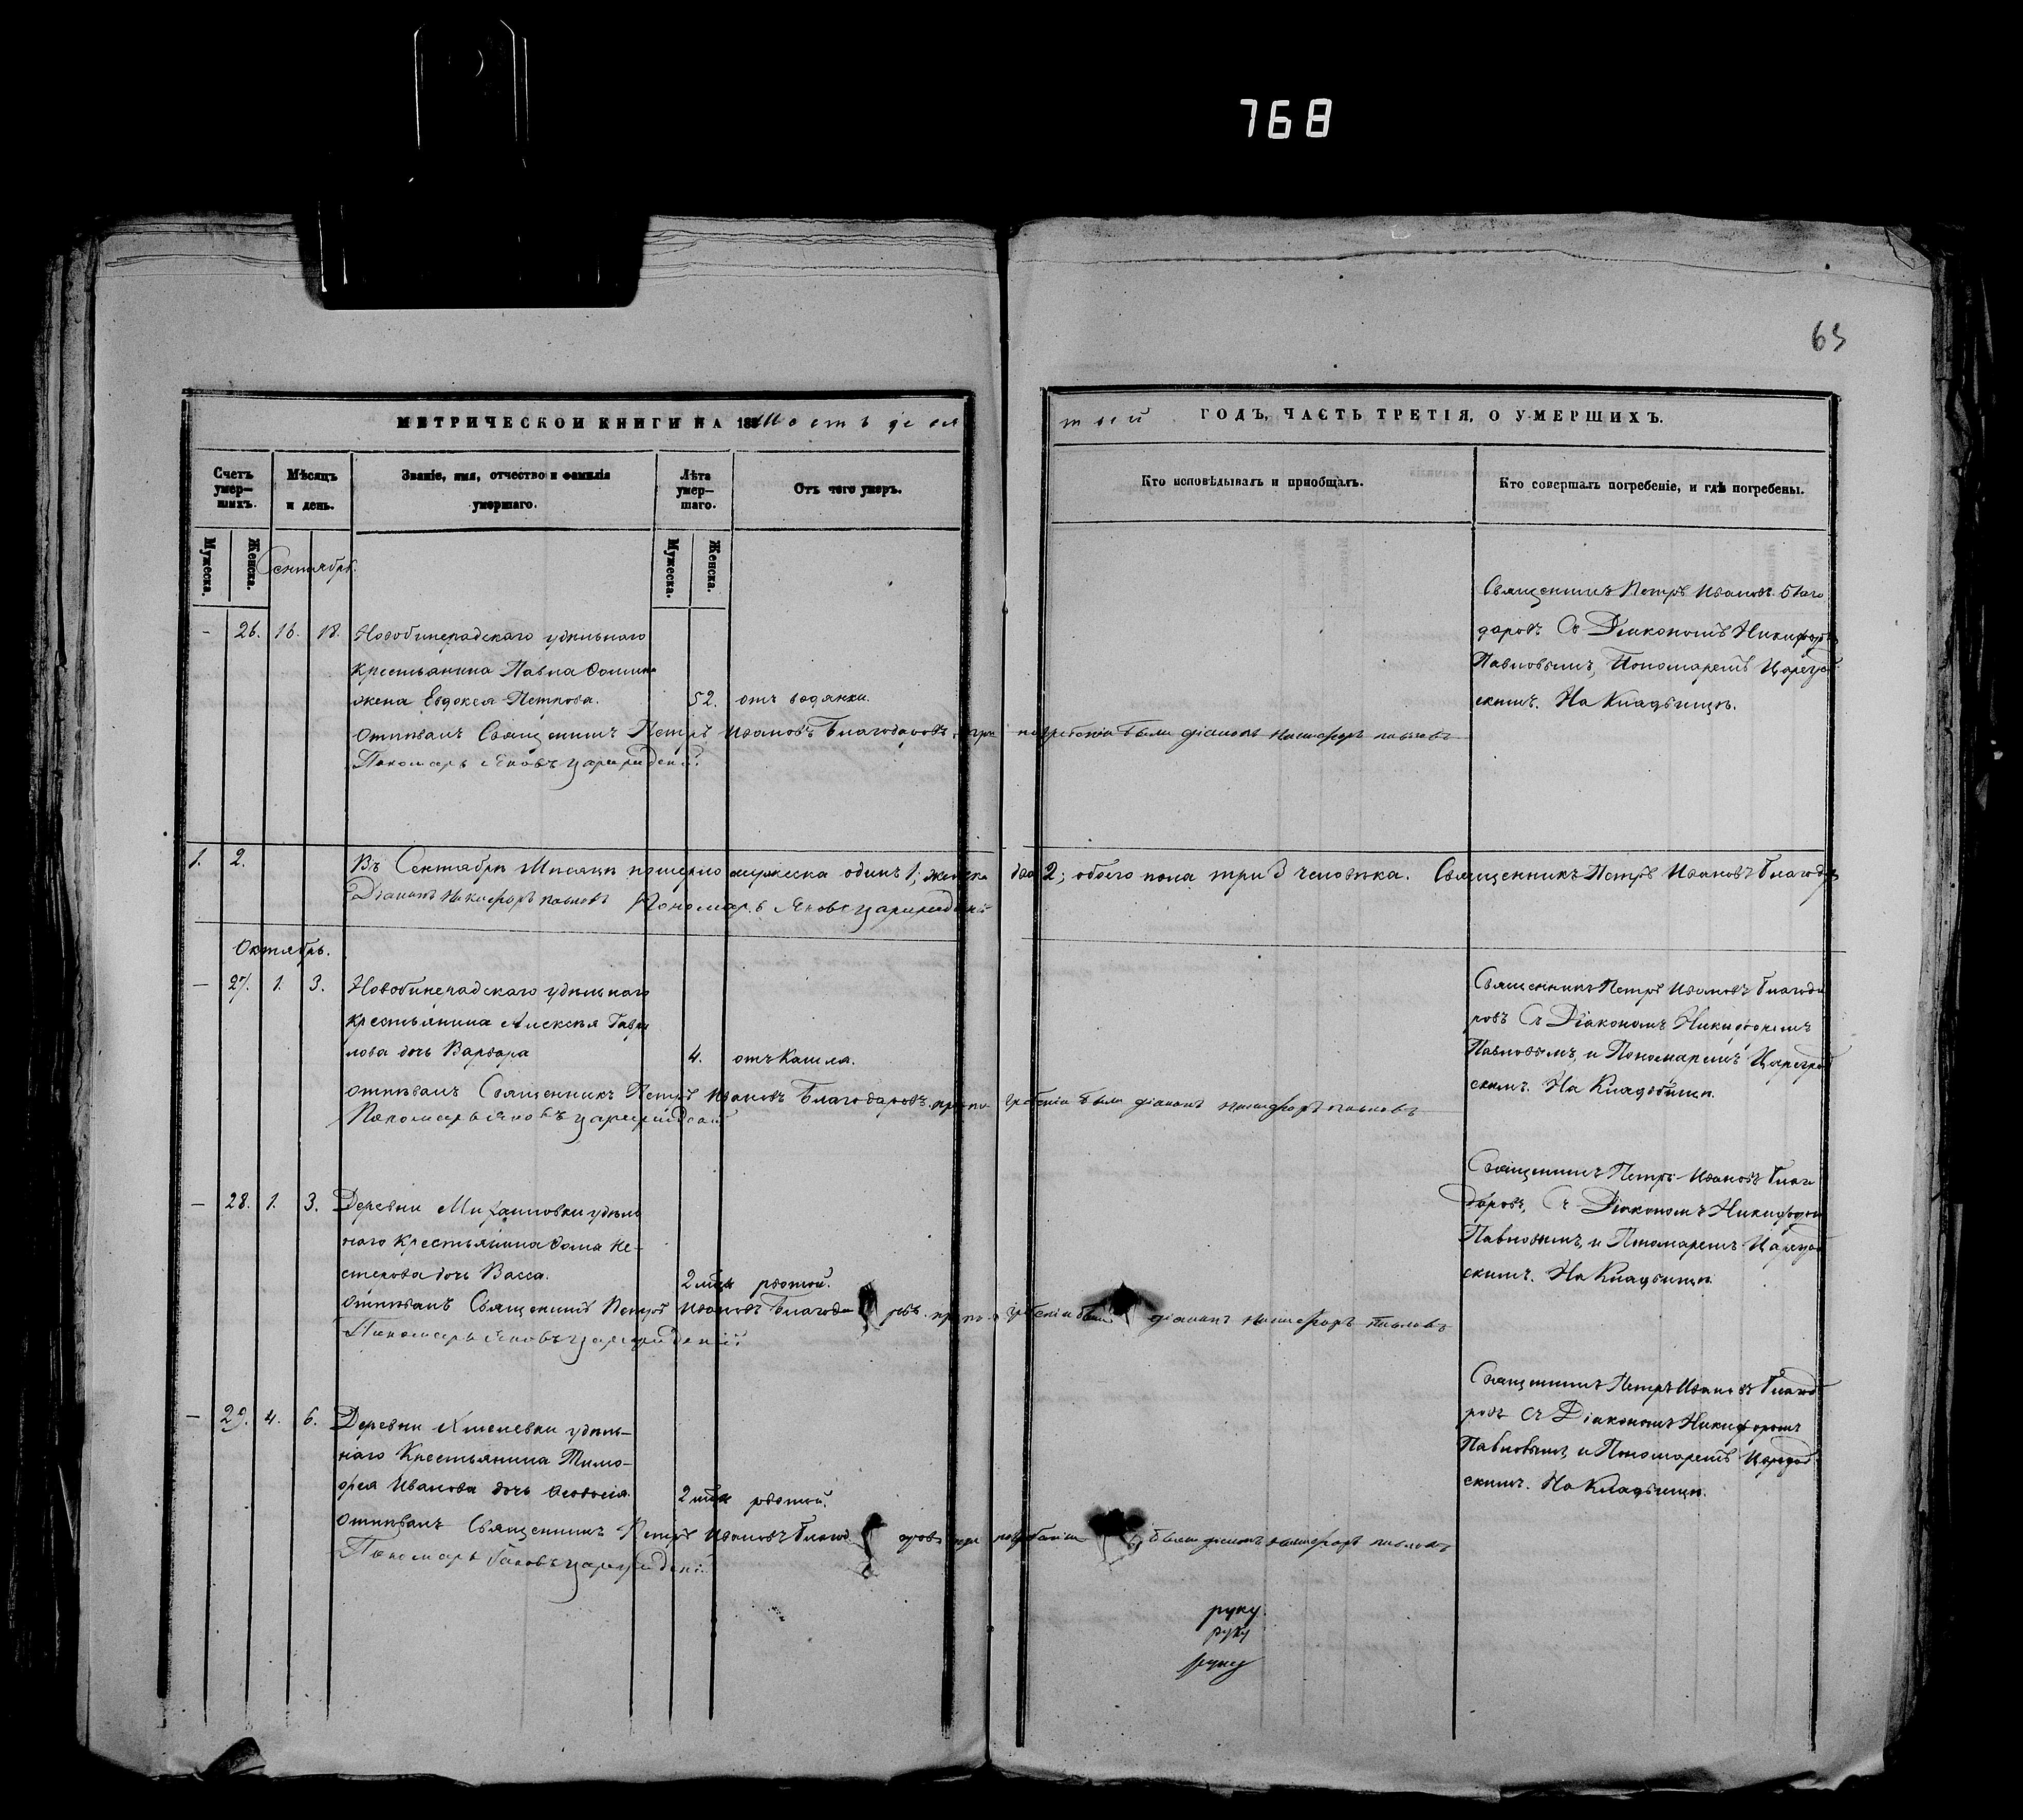 768
63
МЕТРИЧЕСКОЙ КНИГИ НА 18 шестьдеся
тый ГОДЪ, ЧАСТЬ ТРЕТІЯ, О УМЕРШИХЪ.
Счетъ умер-шихъ.
Мѣсяцъ и день.
Званіе, имя, отчество и фамилія умершаго.
Лѣта умер-шаго.
Отъ чего умеръ.
Кто исповѣдывалъ и пріобщалъ.
Кто совершалъ погребеніе, и гдѣ погребены.
Мужеска.
Женска.
Мужеска.
Женска.
Сентябрь.
- 26. 16. 18. Новобинерадскаго удѣльнаго
крестьянина Павла Фомина
жена Евдокея Петрова. 52. отъ водянки.
Отпѣвалъ Священникъ Петръ Ивановъ Благодаровъ. при погребеніи были діаконъ Никифоръ павловъ
Пономарь Яковъ Цареградскій.
Священникъ Петръ Ивановъ Благо
даровъ Съ Діакономъ Никифор
Павловымъ, Пономаремъ Царегра
скимъ. На Кладбищѣ.
1. 2. Въ Сентябрѣ Мѣсяцѣ померло мужеска одинъ 1; женска два 2; обоего пола три 3 человѣка. Священникъ Петръ Ивановъ Благода
Діаконъ Никифоръ павловъ Пономарь Яковъ Цареградскій
Октябрь.
— 27. 1. 3. Новобинерадскаго удѣльнаго
крестьянина Алексѣя Гаври
лова дочь Варвара 4. отъ Кашля.
Отпѣвалъ Священникъ Петръ Ивановъ Благодаровъ. при погребеніи были діаконъ Никифоръ павловъ
Пономарь Яковъ Цареградскій
Священникъ Петръ Ивановъ Благода
ровъ Съ Діакономъ Никифоромъ
Павловымъ, и Пономаремъ Цареград
скимъ. На Кладбищѣ.
— 28. 1. 3. Деревни Михайловки удѣль
наго Крестьянина Фома Не-
стерова дочь Васса. 2 мѣся рвотой.
Отпѣвалъ Священникъ Петръ Ивановъ Благода ровъ. при погребеніи были діаконъ Никифоръ Павловъ
Пономарь Яковъ Цареградскій.
Священникъ Петръ Ивановъ Благо
даровъ, Съ Діакономъ Никифором
Павловымъ, и Пономаремъ Царегра
скимъ. На Кладбищѣ.
— 29. 4. 6. Деревни Хмелевки удѣль-
наго Крестьянина Тимо-
фея Иванова дочь Феодосія. 2 мѣся рвотой.
Отпѣвалъ Священникъ Петръ Ивановъ Благод аровъ при погребеніи были діаконъ Никифоръ павловъ
Пономарь Яковъ Цареградскій.
Священникъ Петръ Ивановъ Благод
ровъ Съ Діакономъ Никифоромъ
Павловымъ, и Пономаремъ Царград
скимъ. На Кладбищѣ.
руку
руку
руку